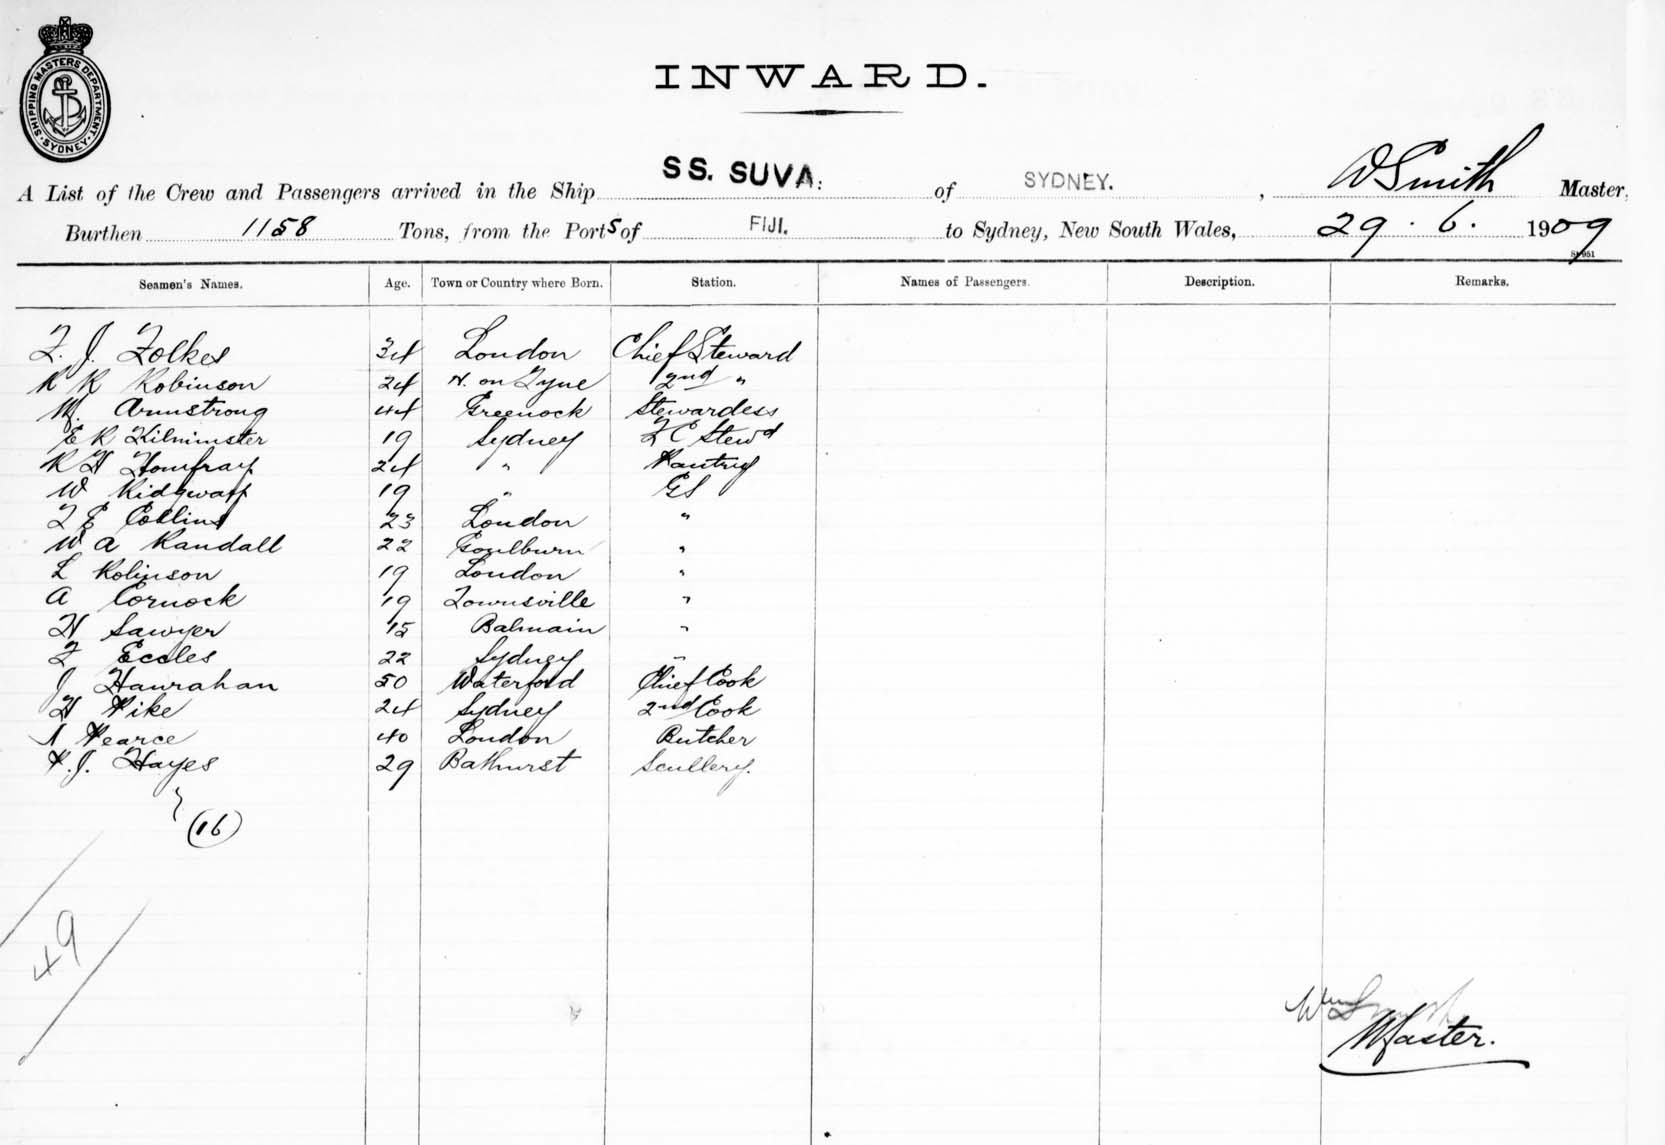 SHIPPING MASTERS DEPARTMENT
SYDNEY
INWARD.
A List of the Crew and Passengers arrived in the Ship SS. SUVA: of SYDNEY. , W Smith Master,
Burthen 1158 Tons, from the Ports of FIJI. to Sydney, New South Wales, 29 . 6. 1909
Seamen's Names. Age. Town or Country where Born. Station. Names of Passengers. Description. Remarks.
F. J. Folkes 34 London Chief Steward
R R Robinson 24 N. on Tyne 2nd "
M. Armstrong 44 Greenock Stewardess
E R Kilminster 19 Sydney F C Stewd
R H Homfray 24 " Pantry
W Ridgway 19 " GS
F E Collins 23 London "
W A Randall 22 Goulburn "
L Robinson 19 London "
A Cornock 19 Townsville "
H Sawyer 15 Balmain "
F Eccles 22 Sydney "
J Hanrahan 50 Waterford Chief Cook
H Pike 24 Sydney 2nd Cook
Pearce 40 London Butcher
P. J. Hayes 29 Bathurst Scullery.
(16)
49
Wm Smith
Master.